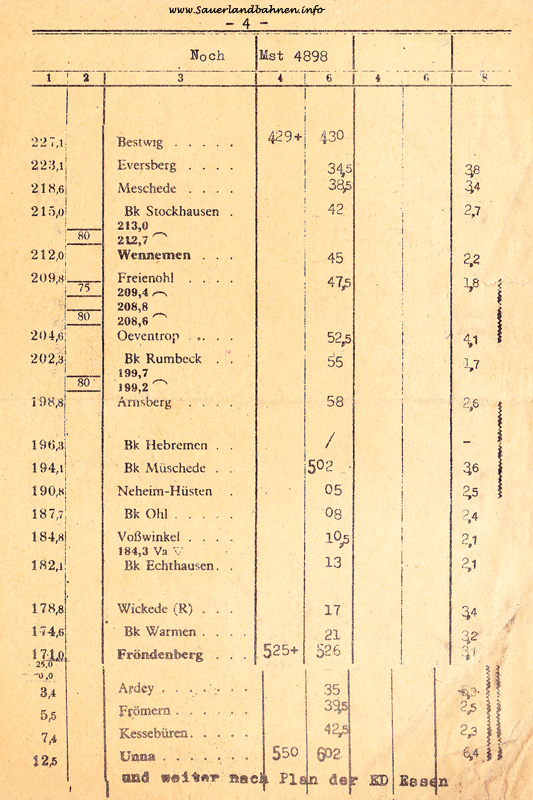 www.Sauerlandbahnen.info
- 4 -
Noch Mst 4898
1 2 3 4 6 4 6 8
227,1 Bestwig . . . . . 429+ 430
223,1 Eversberg . . . . . 34,5 3,8
218,6 Meschede . . . . . 38,5 3,4
215,0 Bk Stockhausen . 42 2,7
213,0
80 212,7
212,0 Wennemen . . . 45 2,2
209,8 Freienohl . . . . 47,5 1,8
75 209,4
208,8
80 208,6
204,6 Oeventrop . . . . 52,5 4,1
202,3 Bk Rumbeck . . . 55 1,7
199,7
80 199,2
198,8 Arnsberg . . . . . 58 2,6
196,3 Bk Hebremen . . / -
194,1 Bk Müschede . . 502 3,6
190,8 Neheim-Hüsten . 05 2,5
187,7 Bk Ohl . . . . . 08 2,4
184,8 Voßwinkel . . . . 10,5 2,1
184,3 Va
182,1 Bk Echthausen. . 13 2,1
178,8 Wickede (R) . . . 17 3,4
174,6 Bk Warmen . . . . 21 3,2
171,0 Fröndenberg . . . 525+ 526 3,1
25,0
0,0
3,4 Ardey . . . . . 35
5,5 Frömern . . . . . 39,5 2,5
7,4 Kessebüren . . . 42,5 2,3
12,5 Unna . . . . . 550 602 6,4
und weiter nach Plan der ED Essen